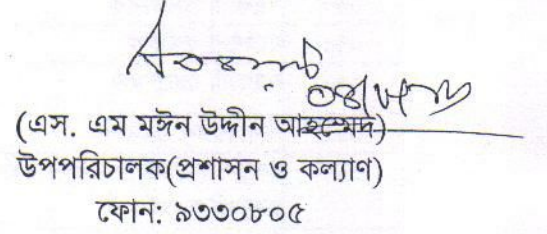 (এস. এম মঈন উদ্দীন আহম্মেদ)
উপপরিচালক(প্রশাসন ও কল্যাণ)
ফোন: ৯৩৩০৮০৫